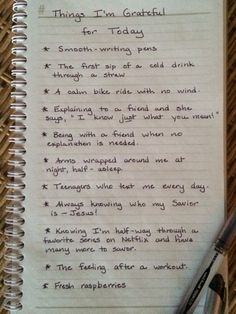 # Things I'm Grateful
for Today
* Smooth-writing pens
* The first sip of a cold drink
through a straw
* A calm bike ride with no wind.
* Explaining to a friend and she
says, "I know just what you mean!"
* Being with a friend when no
explanation is needed.
* Arms wrapped around me at
night, half-asleep.
* Teenagers who text me every day.
* Always knowing who my Savior
is - Jesus!
* Knowing I'm half-way through a
favorite series on Netflix and have
many more to savor.
* The feeling after a workout.
* Fresh raspberries